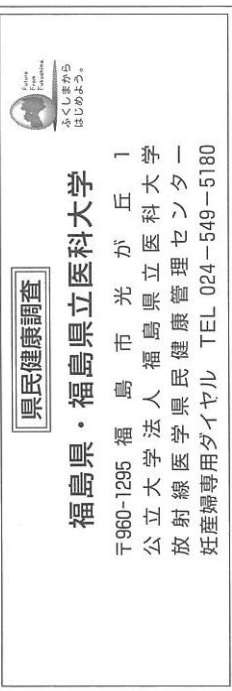 県民健康調査
Future
From
Fukushima.
ふくしまから
はじめよう。
福島県・福島県立医科大学
〒960-1295 福島市光が丘1
公立大学法人 福島県立医科大学
放射線医学県民健康管理センター
妊産婦専用ダイヤル TEL 024-549-5180